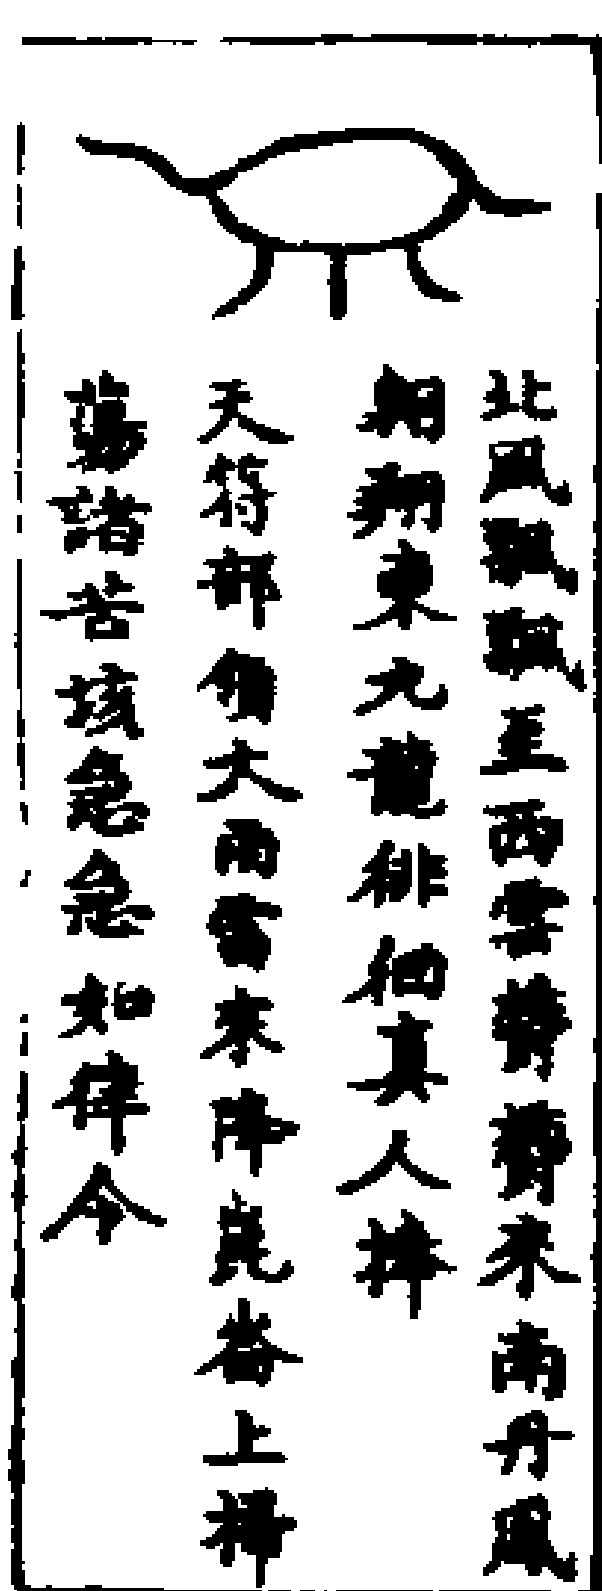 北風飄飄至西雲欝欝来南丹鳳
翱翔東九龍徘徊真人捧
天符部領大雨雷来降崑崙上掃
蕩諸苦垓急急如律令